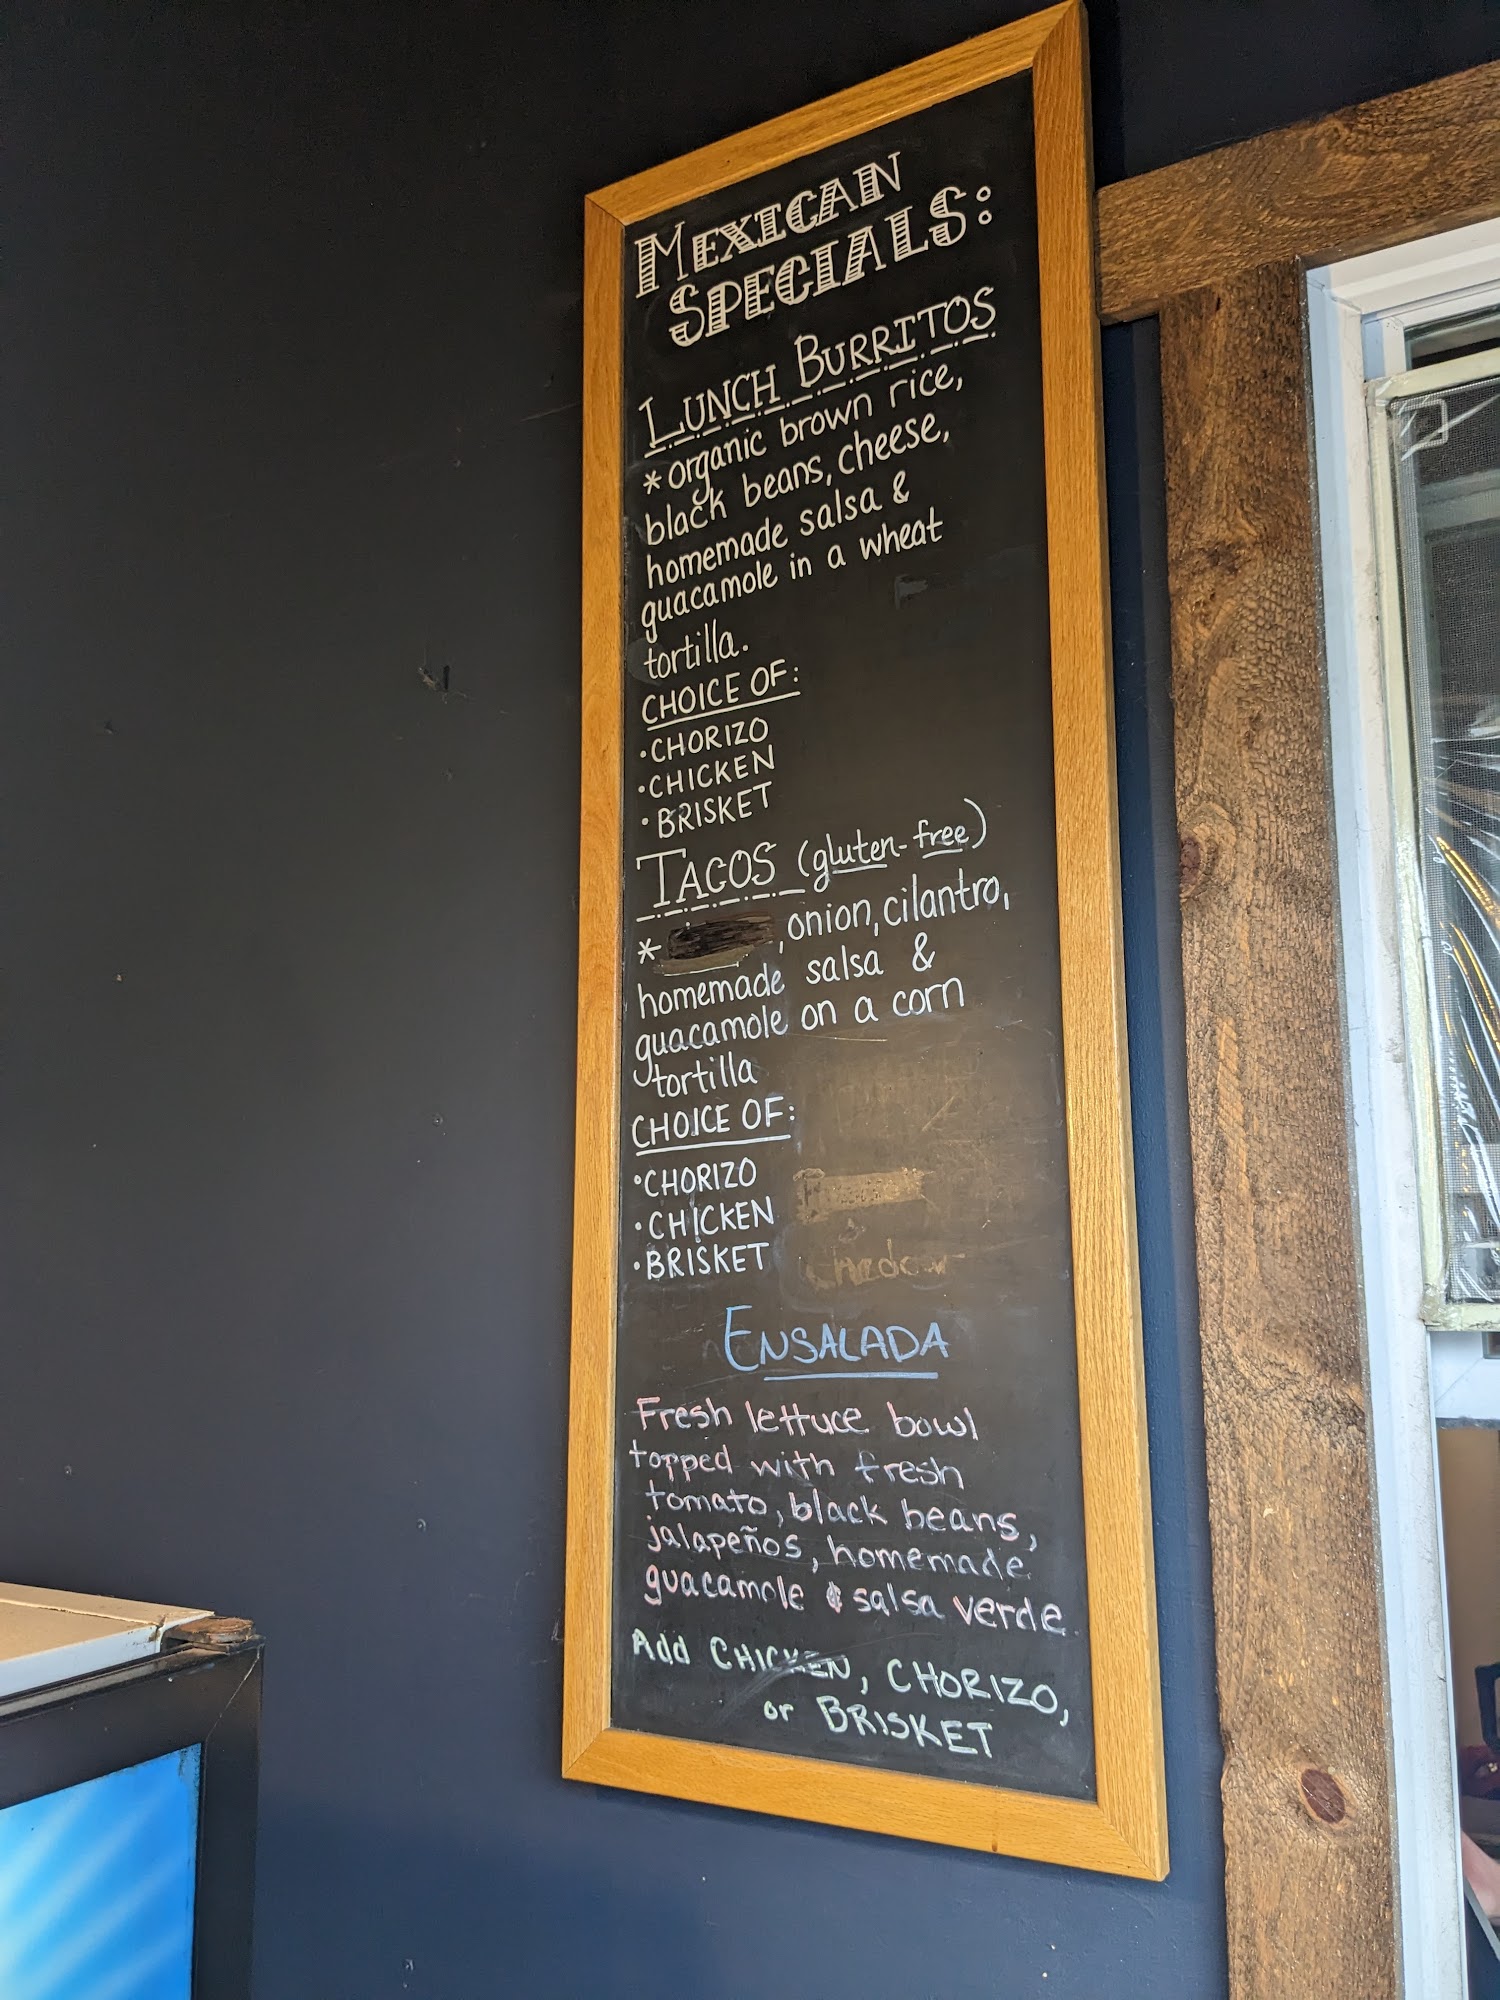 MEXICAN
SPECIALS:
LUNCH BURRITOS
*organic brown rice,
black beans, cheese,
homemade salsa &
guacamole in a wheat
tortilla.
CHOICE OF:
•CHORIZO
•CHICKEN
•BRISKET
TACOS (gluten-free)
* , onion, cilantro,
homemade salsa &
guacamole on a corn
tortilla
CHOICE OF:
•CHORIZO
•CHICKEN
•BRISKET
ENSALADA
Fresh lettuce bowl
topped with fresh
tomato, black beans,
jalapeños, homemade
guacamole & salsa verde
Add CHICKEN, CHORIZO,
or BRISKET